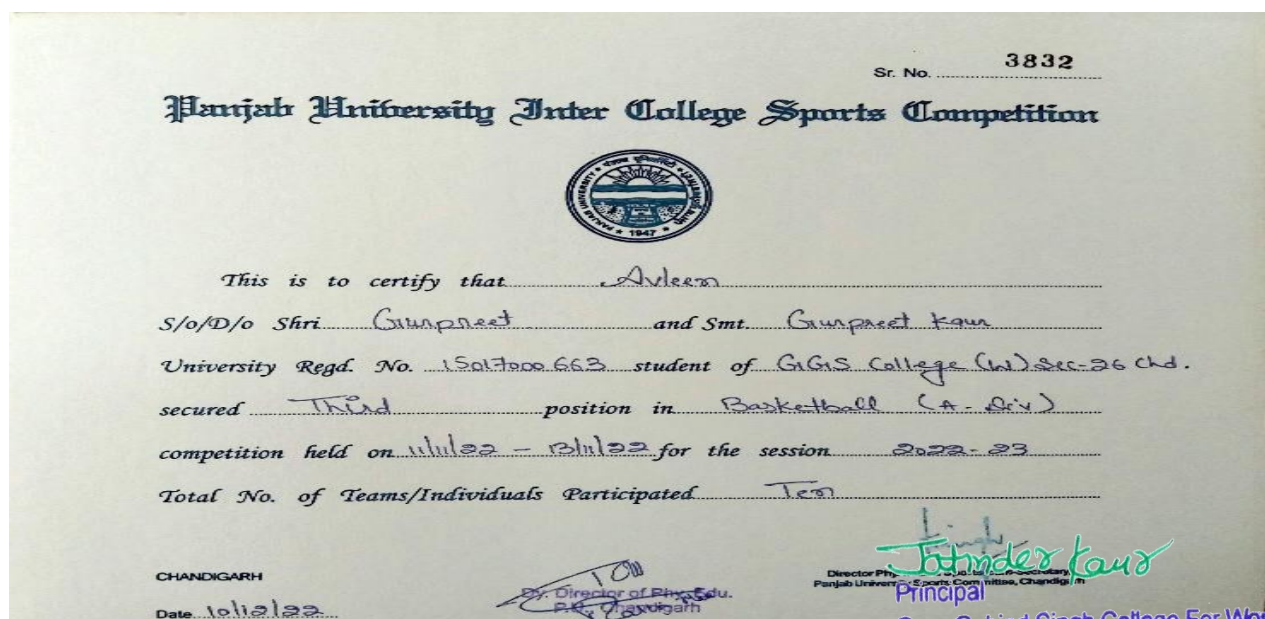 Sr. No. 3832
Panjab University Inter College Sports Competition
PANJAB UNIVERSITY
1947
This is to certify that Avleen
S/o/D/o Shri Gurpreet and Smt. Gurpreet Kaur
University Regd. No. 15017000663 student of GGS College (W) Sec-26 Chd.
secured Third position in Basketball (A-Div)
competition held on 11/11/22 - 13/11/22 for the session 2022-23
Total No. of Teams/Individuals Participated Ten
Jatinder Kaur
CHANDIGARH
Dy. Director of Phy. Edu.
P.U., Chandigarh
Director Phy
Panjab University Sports Committee, Chandigarh
Principal
Date 10/12/22
Gobind Singh College For